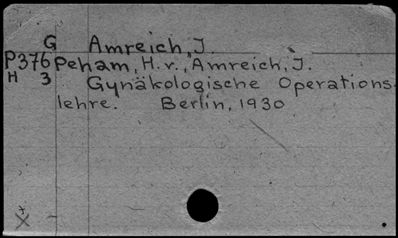 G Amreich, J.
P376 Peham, H.v., Amreich, J.
H 3 Gynäkologische Operations-
lehre. Berlin, 1930